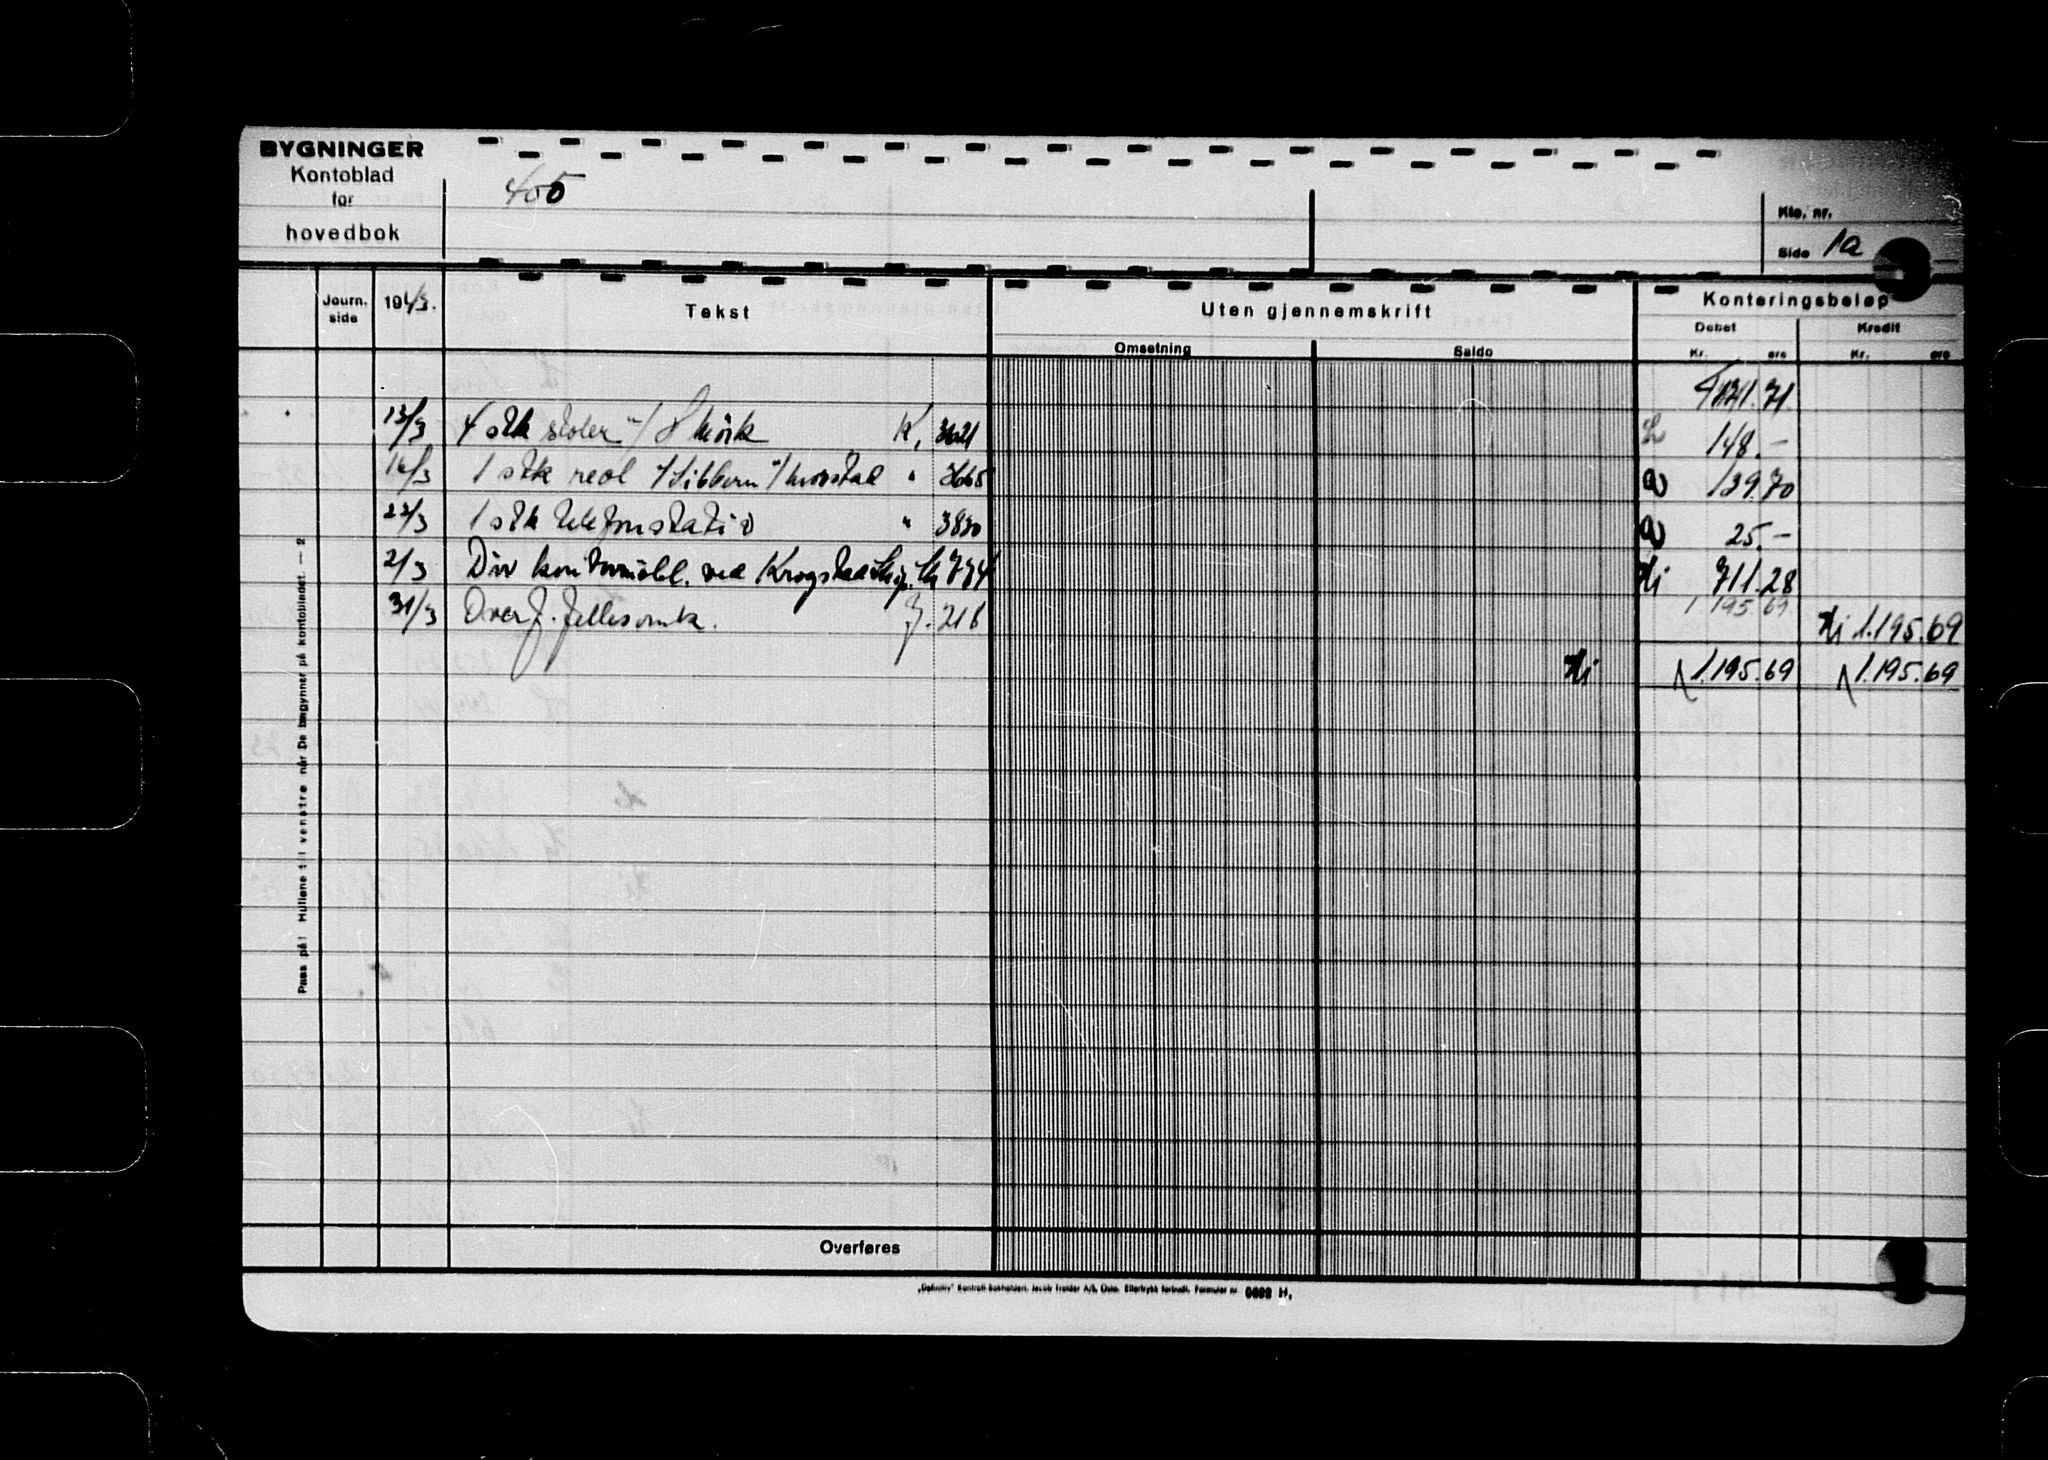 BYGNINGER
Kontoblad
for
hovedbok
405
Kto. nr.
Side 1a
Journ. side
Tekst
Uten gjennemskrift
Konteringsbeløp
Debet
Kredit
Omsetning
Saldo
Kr. øre
Kr. øre
13/3 4 stk stoler K. 3621 148.-
16/3 1 stk reol " 3665 139.70
22/3 1 stk telefonstativ " 3830 25.-
2/3 Div kontormøbl. ved Krogstad 774 Hj 711.28
1195.69
31/3 Overf. Fellesomk. J. 218 Hj 1.195.69
Hj 1.195.69 1.195.69
Pass på! Hullene til venstre når De begynner på kontobladet. — 2
Overføres
„Definitiv" Kontroll-Bokholderi. Jacob Trøider A/S, Oslo. Ettertrykk forbudt. Formular nr. 0692 H.